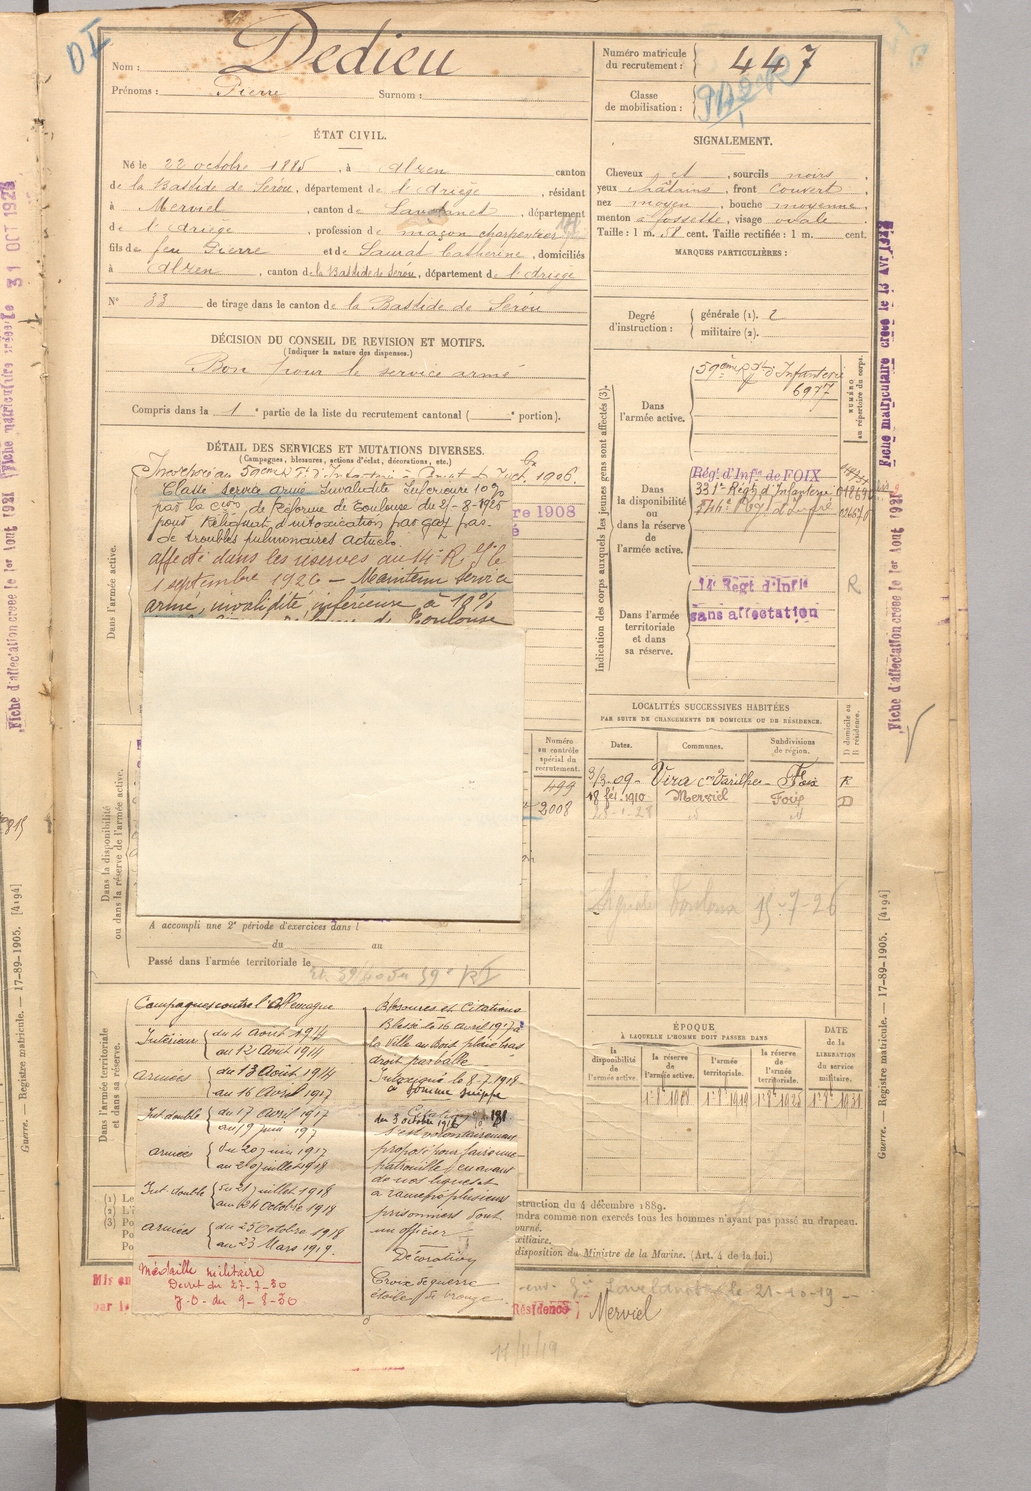 Nom : Dedieu
Prénoms : Pierre Surnom :
Numéro matricule du recrutement : 447
Classe de mobilisation :
ÉTAT CIVIL.
Né le 22 octobre 1885, à Alzen canton
de la Bastide de Sérou, département de l'Ariège, résidant
à Merviel, canton de Lavelanet, département
de l'Ariège, profession de maçon charpentier
fils de feu Pierre et de Saurat Catherine, domiciliés
à Alzen, canton de la Bastide de Sérou, département de l'Ariège
N° 33 de tirage dans le canton de la Bastide de Sérou
SIGNALEMENT.
Cheveux et, sourcils noirs,
yeux châtains, front couvert
nez moyen, bouche moyenne,
menton à fossette, visage ovale
Taille : 1 m. 58 cent. Taille rectifiée : 1 m. cent.
MARQUES PARTICULIÈRES :
Degré d'instruction : générale (1). 2
militaire (2).
DÉCISION DU CONSEIL DE REVISION ET MOTIFS.
(Indiquer la nature des dispenses.)
Bon pour le service armé
Compris dans la 1e partie de la liste du recrutement cantonal ( e portion).
DÉTAIL DES SERVICES ET MUTATIONS DIVERSES.
(Campagnes, blessures, actions d'éclat, décorations, etc.)
1906.
Classé service armé Invalidité Inférieure 10%
par la de Réforme de Toulouse du 21-8-1925
pour Reliquat d'intoxication par gaz pas
de troubles pulmonaires actuels.
affecté dans les réserves au 14e R le
1 septembre 1926 — Maintenu service
armé, invalidité inférieure à 10%
de Toulouse
re 1908
Dans l'armée active.
Indication des corps auxquels les jeunes gens sont affectés (3).
Dans l'armée active. 59ème Rgt d'Infanterie
6977
NUMÉRO au répertoire du corps.
Dans la disponibilité ou dans la réserve de l'armée active.
Régt d'Infie de FOIX
331e Régt d'Infanterie
344e
Dans l'armée territoriale et dans sa réserve.
14e Régt d'Infie
sans affectation
R
LOCALITÉS SUCCESSIVES HABITÉES
PAR SUITE DE CHANGEMENTS DE DOMICILE OU DE RÉSIDENCE.
Dates. Communes. Subdivisions de région. D domicile ou R résidence.
9/3-09 - Vira con Varilhes - Foix R
18 fév. 1910 Merviel Foix D
Toulouse 15-7-26
Numéro au contrôle spécial du recrutement.
499
2008
Dans la disponibilité ou dans la réserve de l'armée active.
A accompli une 2e période d'exercices dans l
du au
Passé dans l'armée territoriale le
Dans l'armée territoriale et dans sa réserve.
Campagnes contre l'Allemagne
Intérieur du 4 Août 1914
au 12 Août 1914
armées du 13 Août 1914
au 16 Avril 1917
Int double du 17 Avril 1917
au 19 juin 197
armées du 20 juin 1917
au 20 juillet 1918
Int. double du 21 juillet 1918
au 24 Octobre 1918
armées du 25 Octobre 1918
au 23 Mars 1919.
Médaille militaire
Décret du 27-7-30
J.O. du 9-8-30
Blessures et Citations
Blessé le 16 Avril 1917 à
la Ville au Bois plaie bras
droit par balle
Intoxiqué le 8-7-1918
à Somme Suippe
Citation
du 3 octobre 1916
S'est volontairement
proposé pour faire une
patrouille en avant
de nos lignes et
a ramené plusieurs
prisonniers dont
un officier
Décoration
Croix de guerre
étoile de bronze
ÉPOQUE
À LAQUELLE L'HOMME DOIT PASSER DANS
la disponibilité de l'armée active.
la réserve de l'armée active.
l'armée territoriale.
la réserve de l'armée territoriale.
DATE de la LIBÉRATION du service militaire.
struction du 4 décembre 1889.
endra comme non exercés tous les hommes n'ayant pas passé au drapeau.
ourné.
xiliaire.
disposition du Ministre de la Marine. (Art. 4 de la loi.)
Mis en
par l
le 21-10-19
Résidence Merviel
11/11/19
Guerre. — Registre matricule. — 17-89-1905. [4194]
Guerre. — Registre matricule. — 17-89-1905. [4194]
Fiche matriculaire créée le 13 Avr
Fiche d'affectation créée le 1er Aout 1931
Fiche d'affectation créée le 1er Aout 1931
Fiche matriculaire créée le 31 OCT 192